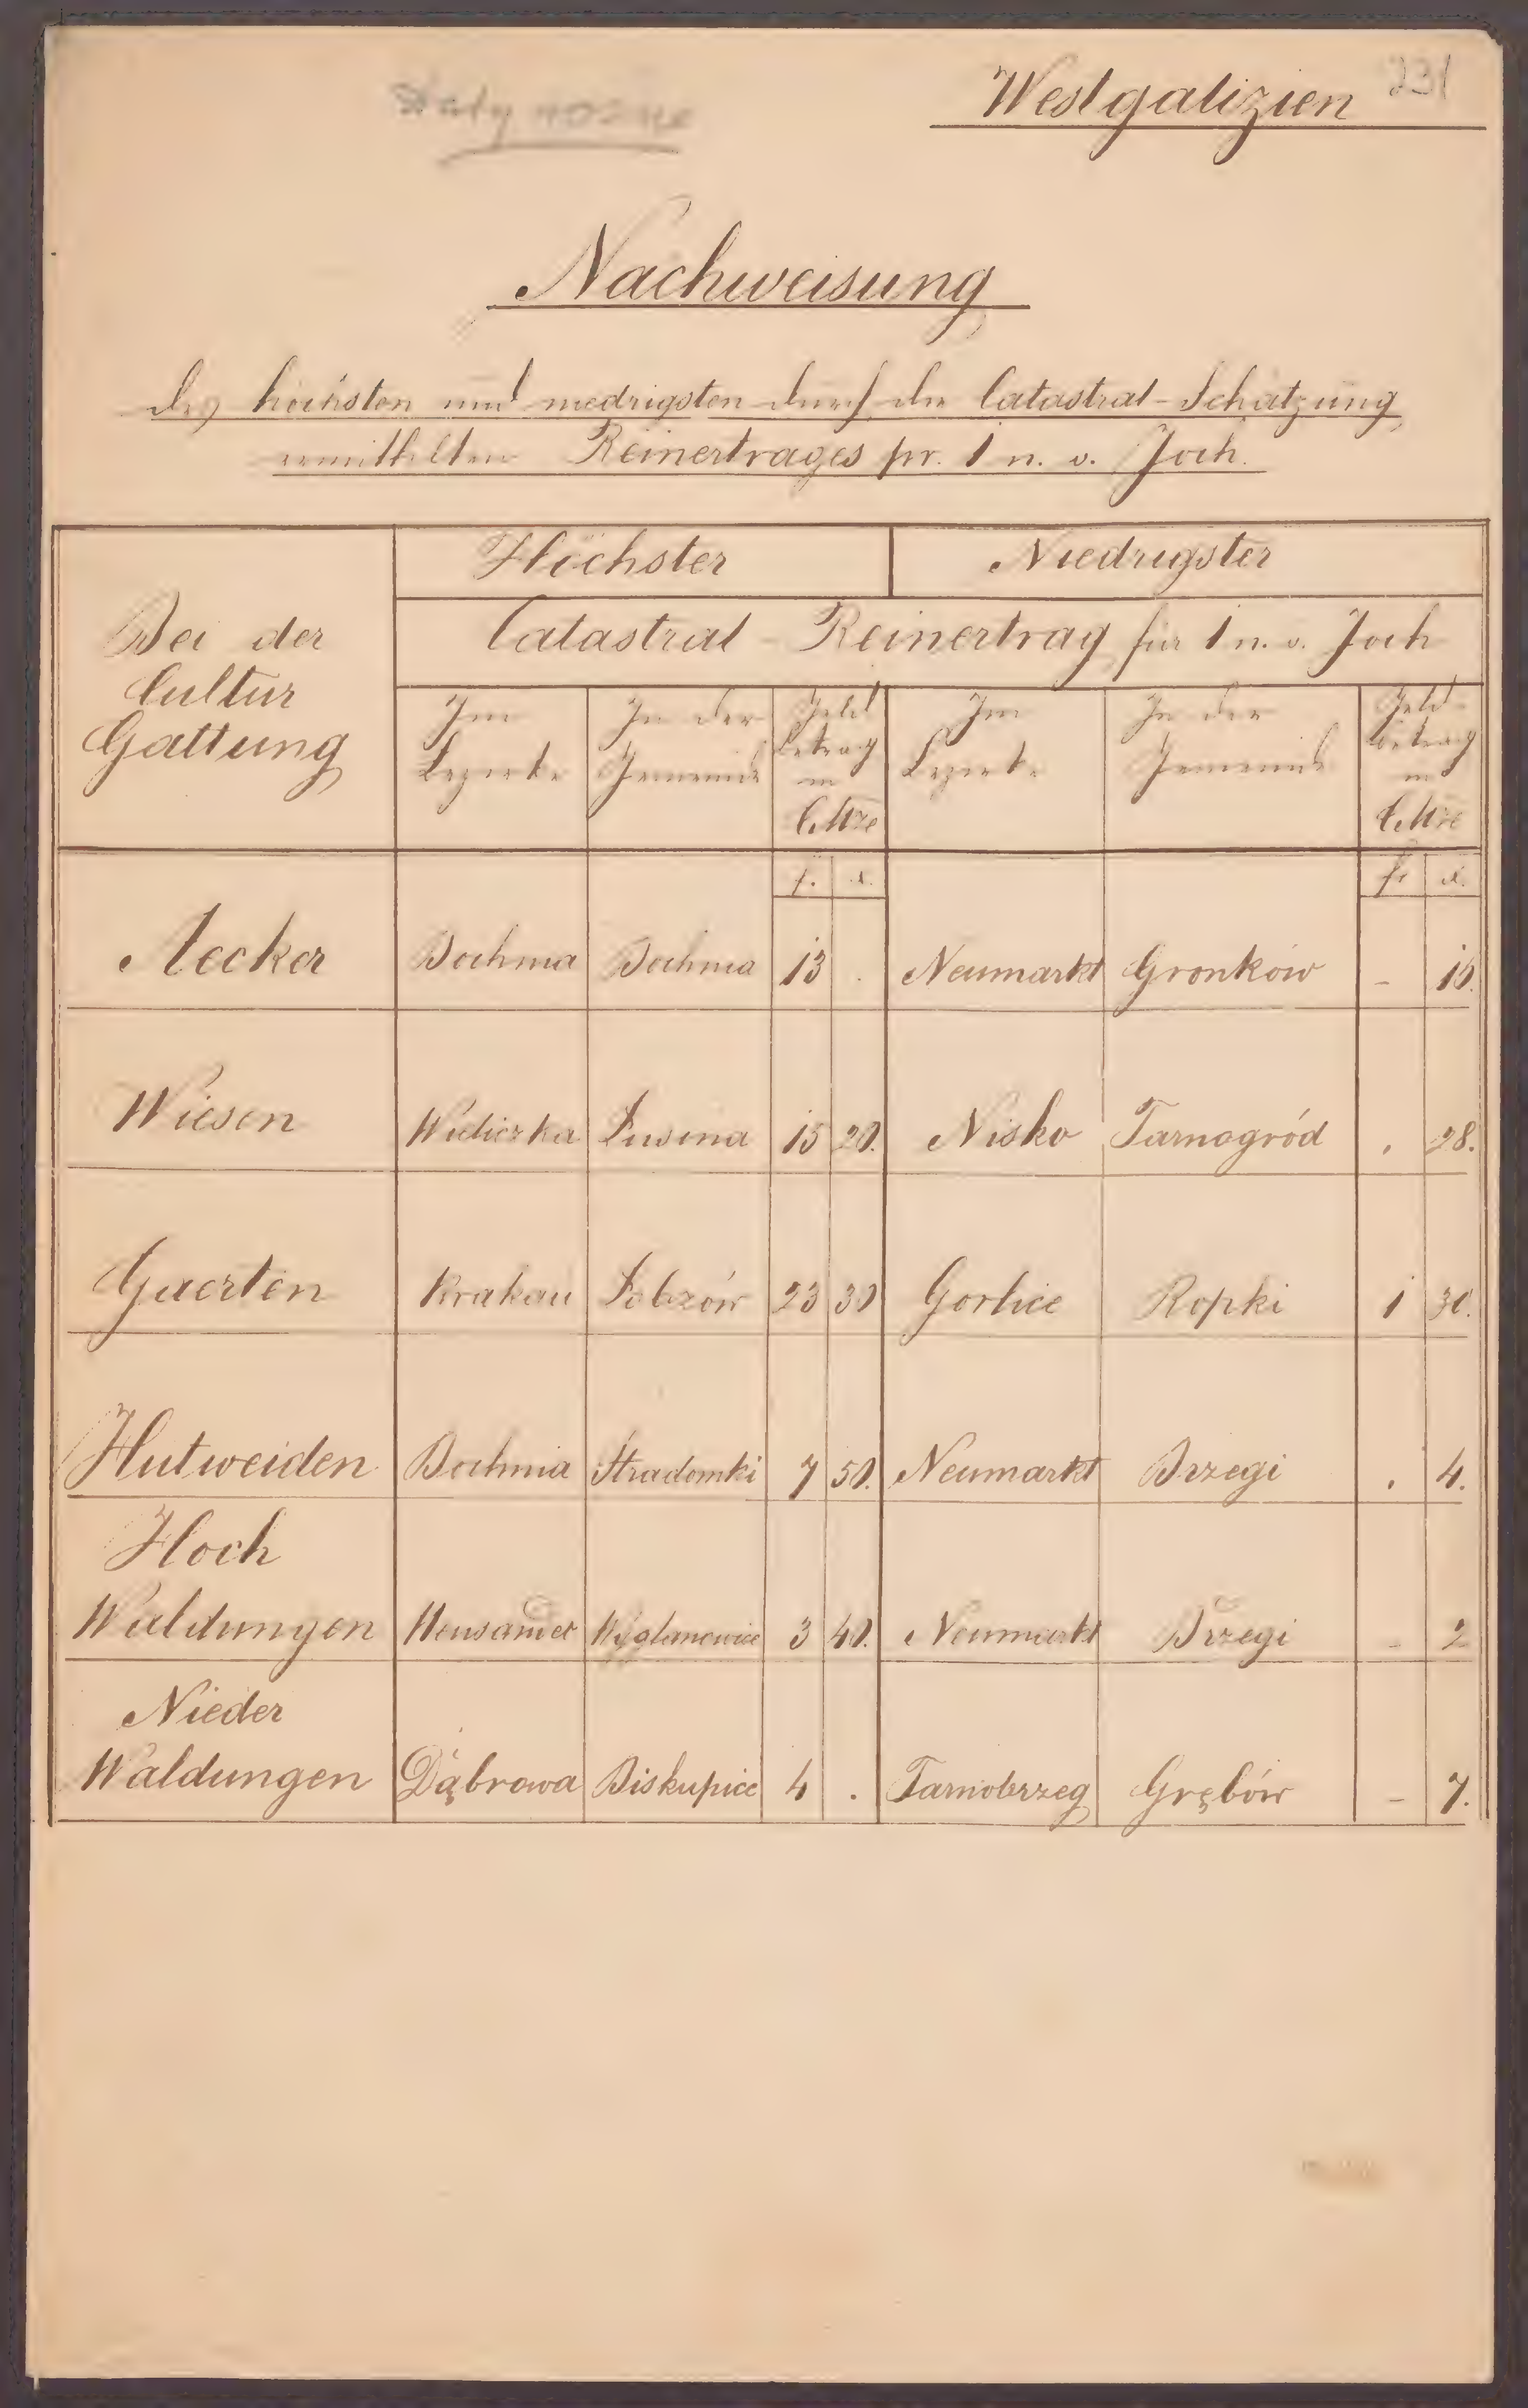 231
Westgalizien
Nachweisung
des höchsten und niedrigsten durch die Catastral-Schätzung
ermittelten Reinertrages pr. 1 n. ö. Joch.
Höchster Niedrigster
Bei der
Cultur
Gattung
Catastral-Reinertrag für 1 n. ö. Joch
Im Bezirke In der Gemeinde Geld betrag in C.Mze Im Bezirke In der Gemeinde Geld- betrag in C.Mze
f. x. f. x.
Aecker Bochnia Bochnia 13 . Neumarkt Gronków -
Wiesen Wieliczka 15 20. Nisko Tarnogród . 28.
Gaerten Krakau Łobzów 23 30 Gorlice Ropki 1 30.
Hutweiden Bochnia Stradomki 7 50. Neumarkt Brzegi . 4.
Hoch
Waldungen 3 40. Neumarkt Brzegi - 2
Nieder
Waldungen Dąbrowa Biskupice 4 . Tarnobrzeg Grębów - 7.